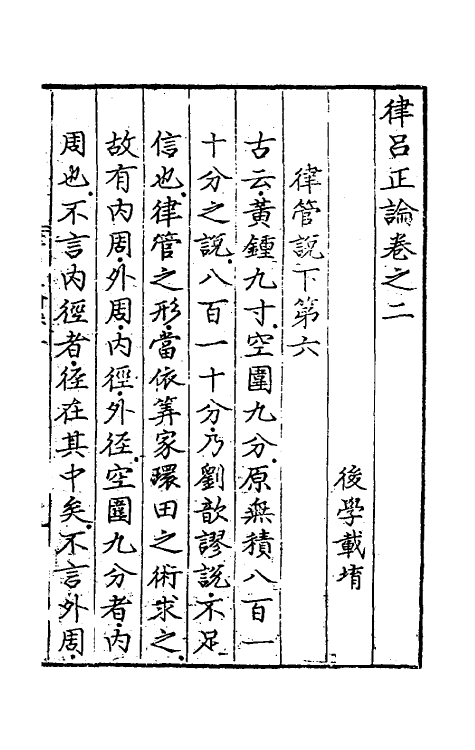 律呂正論卷之二
後學載堉
律管說下第六
古云黃鍾九寸空圍九分原無積八百一
十分之說八百一十分乃劉歆謬說不足
信也律管之形當依筭家環田之術求之
故有內周外周內徑外徑空圍九分者內
周也不言內徑者徑在其中矣不言外周